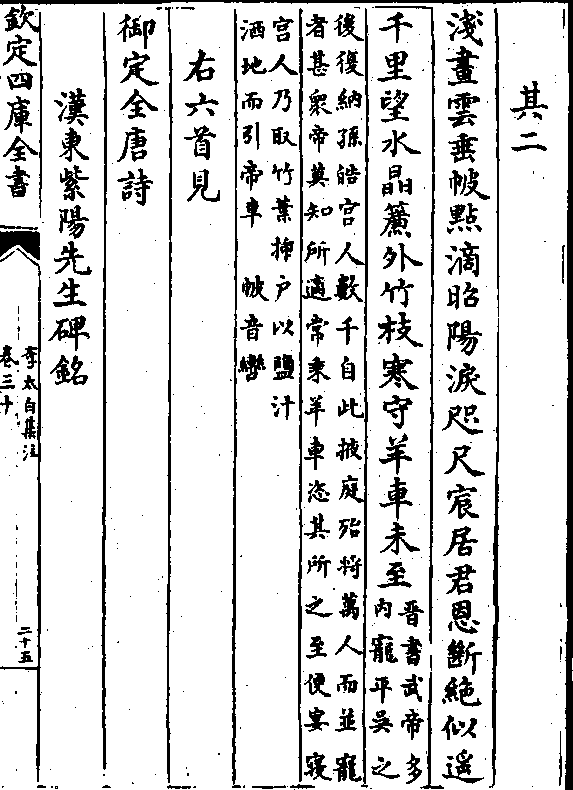 其二
淺畫雲垂帔點滴昭陽淚咫尺宸居君恩斷絶似遥
千里望水晶簾外竹枝寒守羊車未至
晉書武帝多
内寵平吳之
後復納孫皓宫人數千自此掖庭殆將萬人而並寵
者甚衆帝莫知所適常乘羊車恣其所之至便宴寢
宫人乃取竹葉揷户以鹽汁
洒地而引帝車 帔音巒
右六首見
御定全唐詩
漢東紫陽先生碑銘
欽定四庫全書
李太白集注
卷三十
二十五